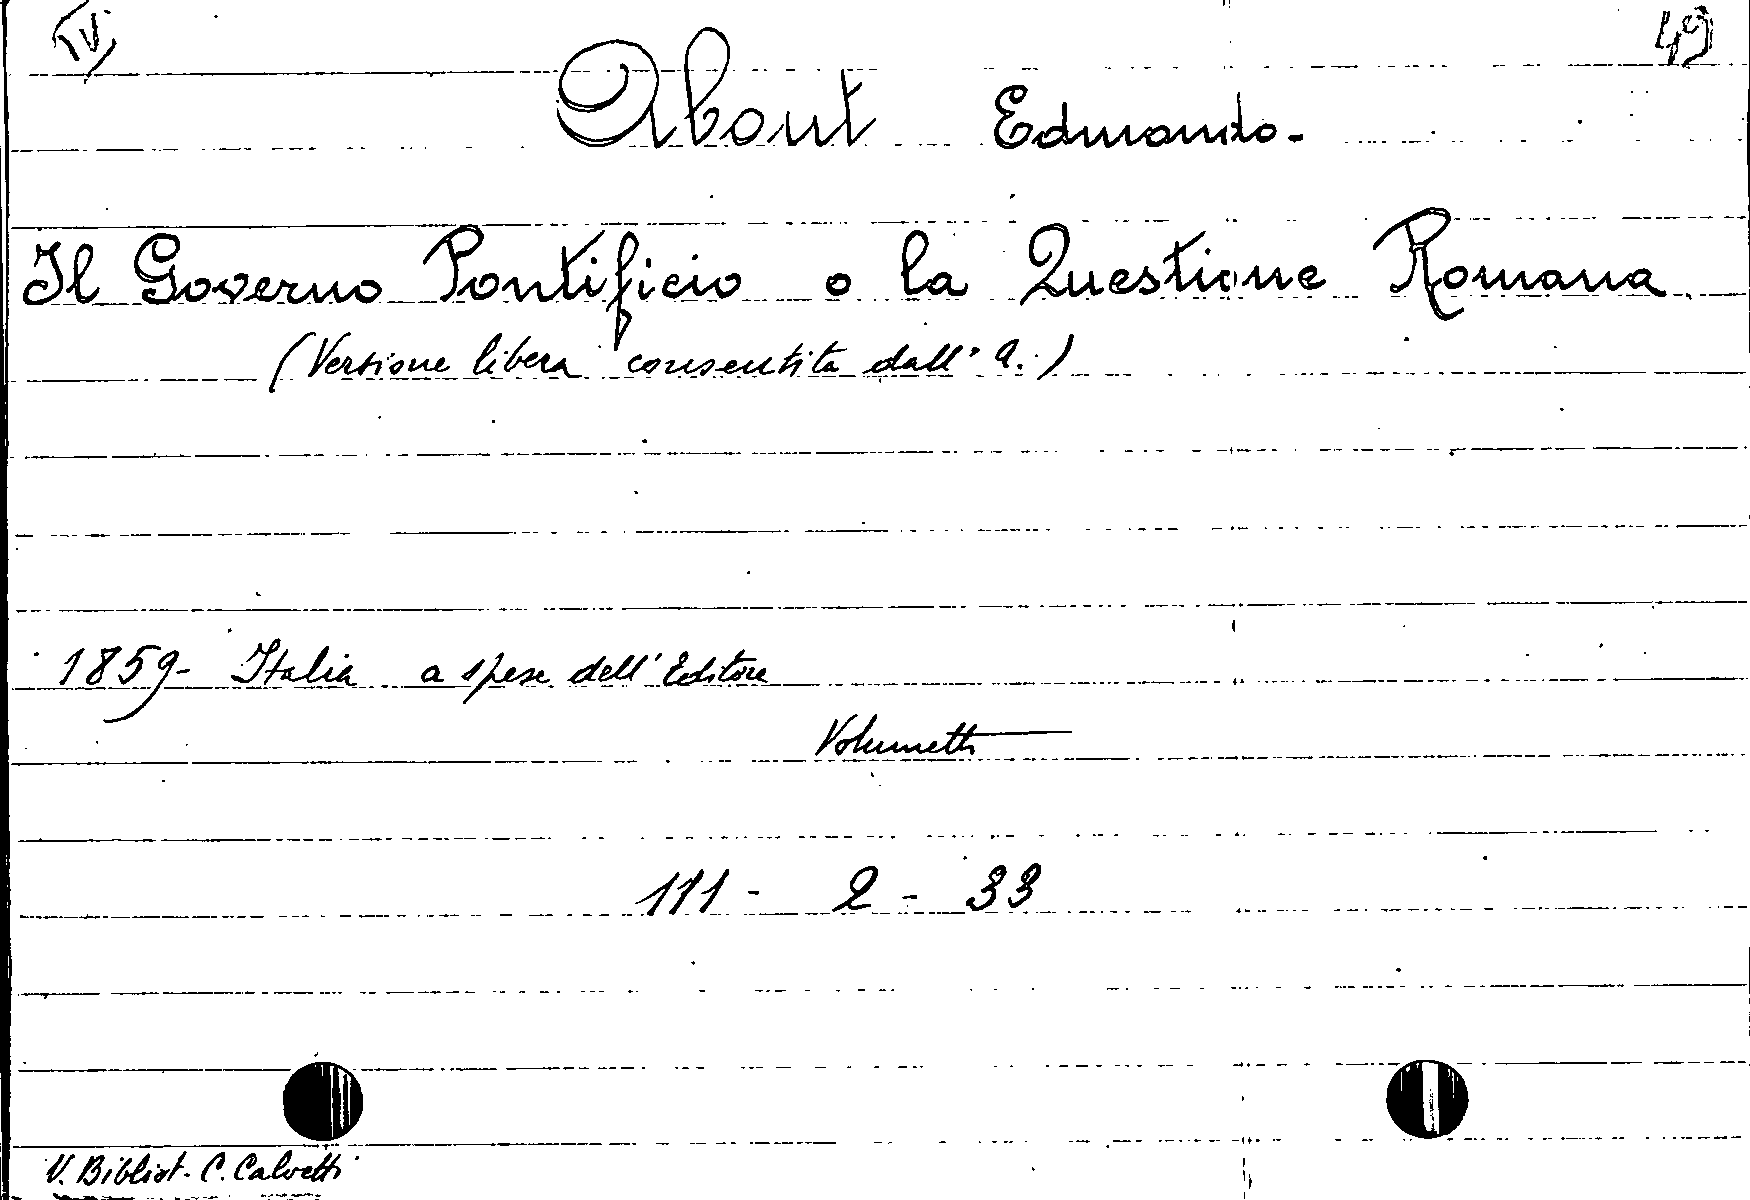 IV) 49
About Edmondo-
Il Governo Pontificio o la Questione Romana.
(Versione libera consentita dall' A.)
1859- Italia a spese dell' Editore
Volumetti
111 - 2 - 33
V. Bibliot. C. Calvetti